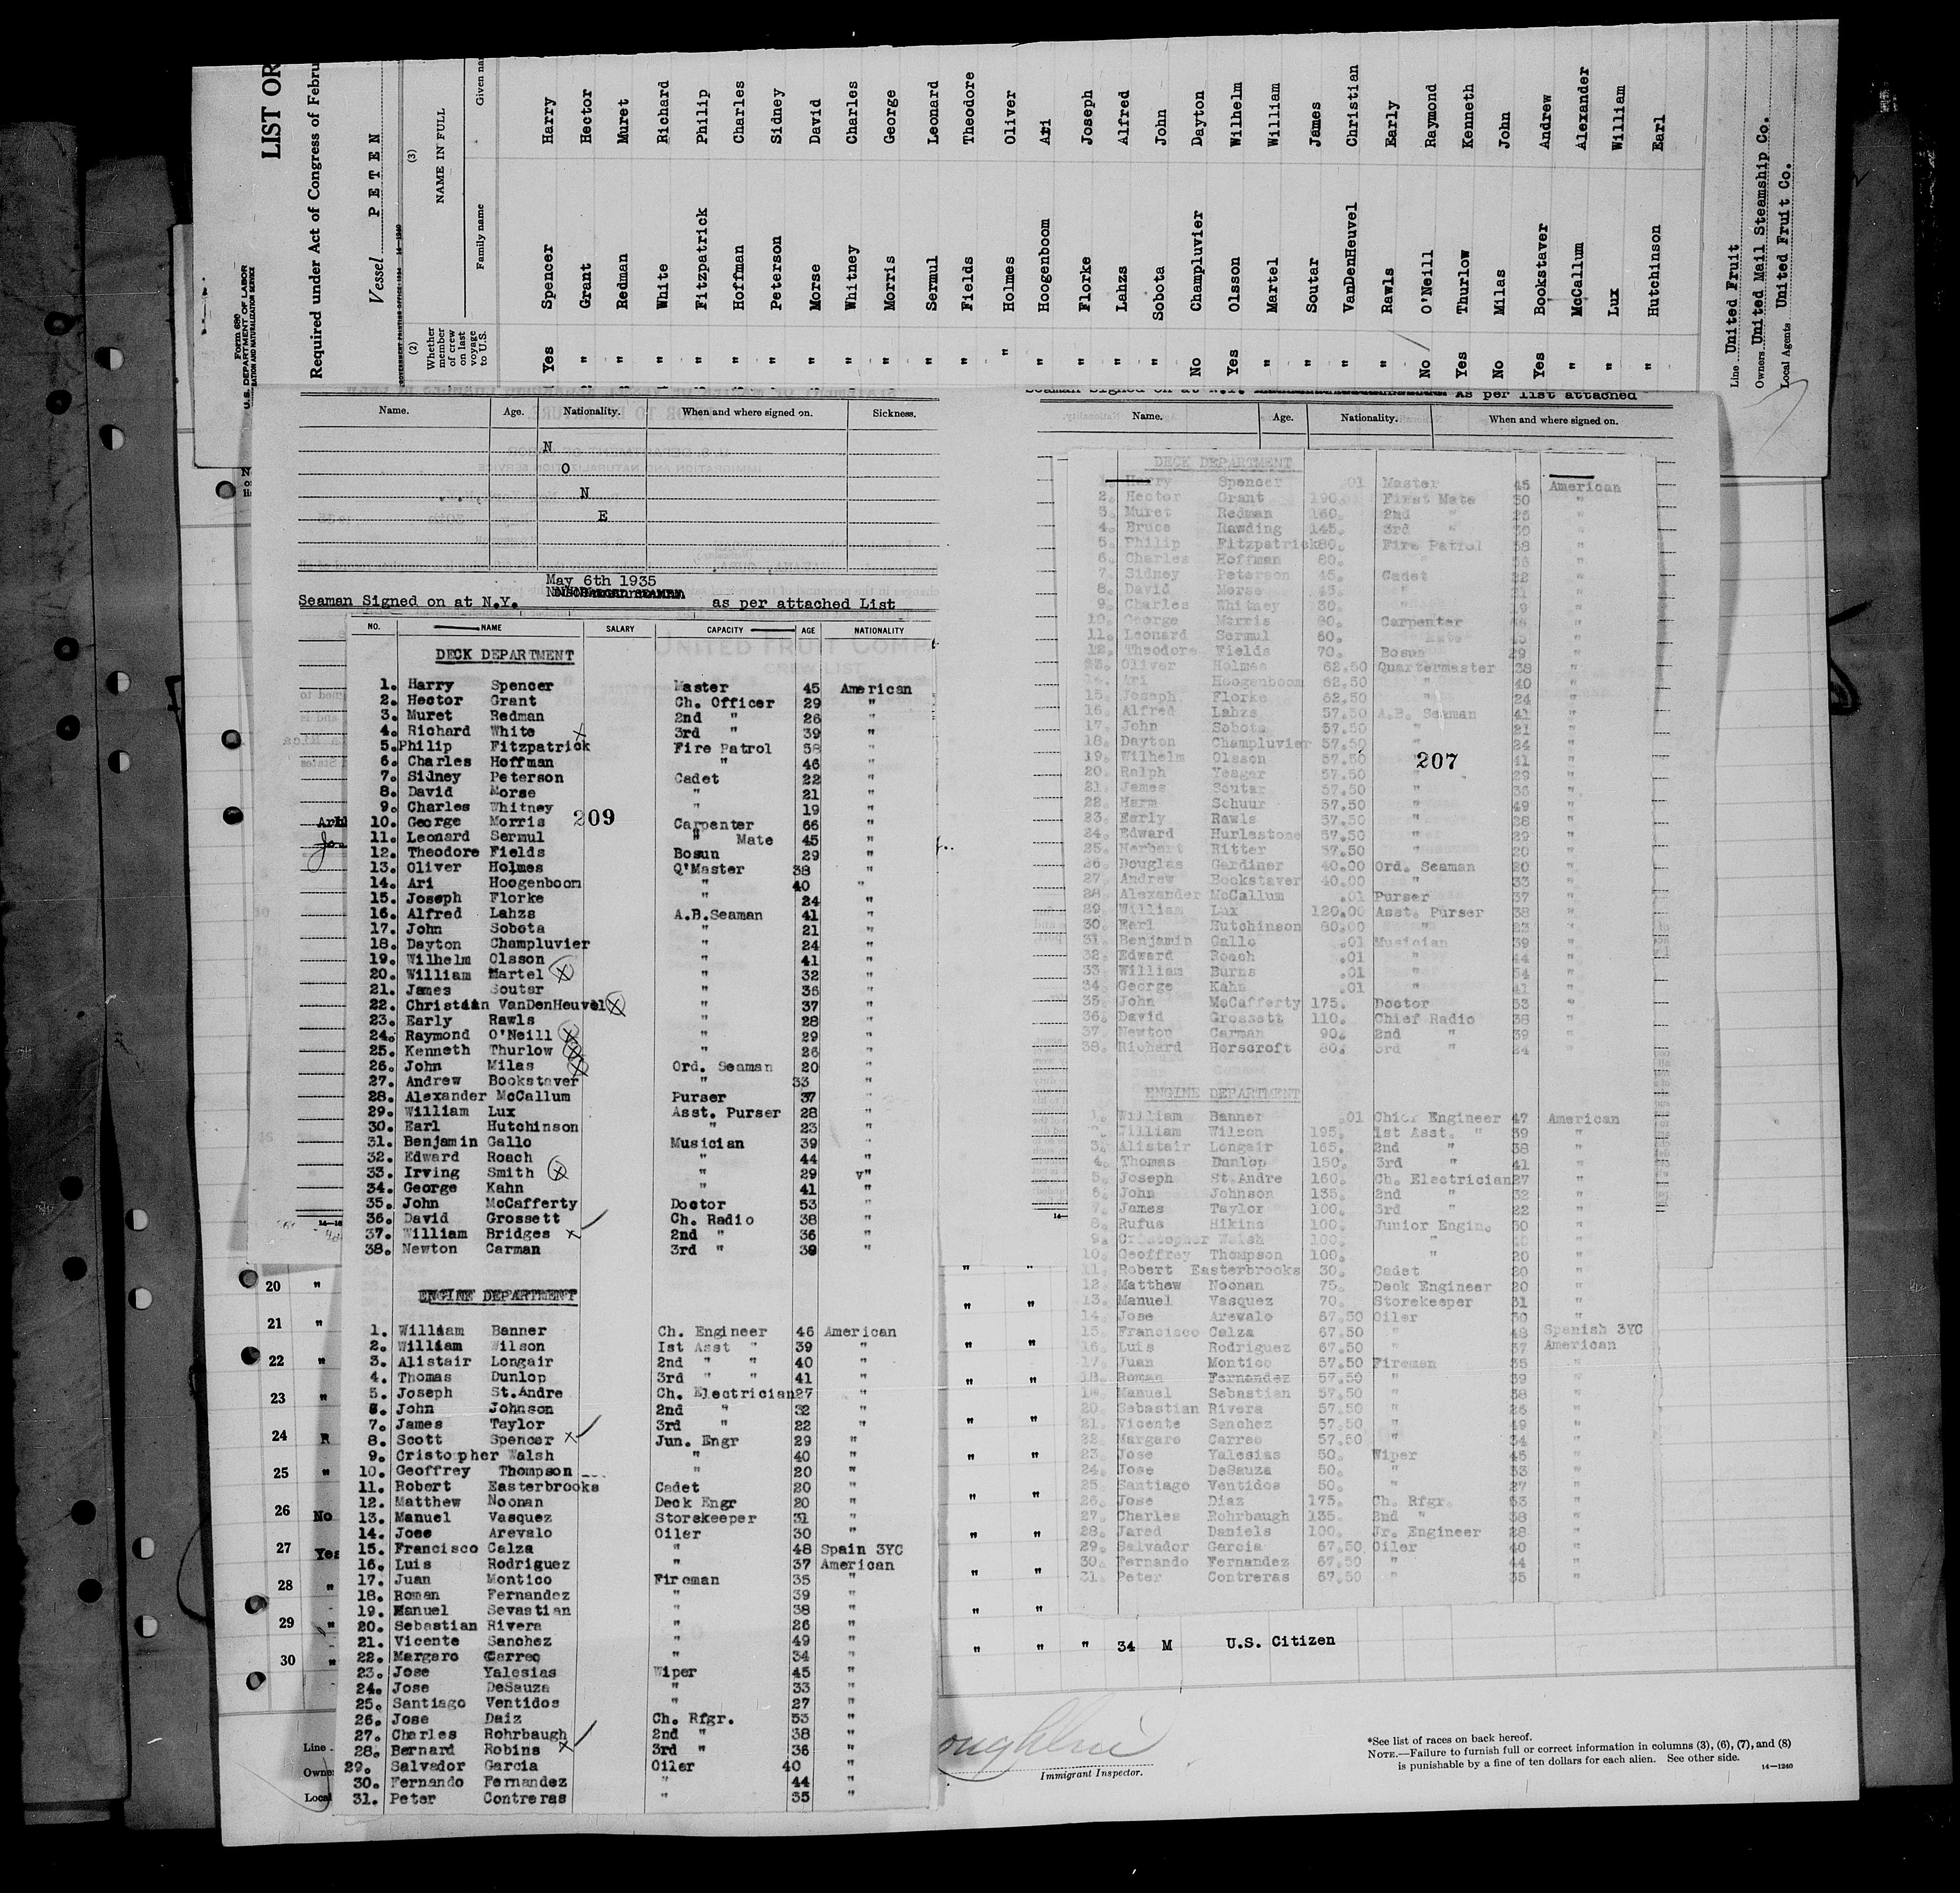 LIST OR
Form 680
U.S. DEPARTMENT OF LABOR
Required under Act of Congress of Febru
Vessel PETEN
(2)
Whether member of crew on last voyage to U.S.
(3)
NAME IN FULL
Family name
Given na
Yes Spencer Harry
" Grant Hector
" Redman Muret
" White Richard
" Fitzpatrick Philip
" Hoffman Charles
" Peterson Sidney
" Morse David
" Whitney Charles
" Morris George
" Sermul Leonard
" Fields Theodore
" Holmes Oliver
" Hoogenboom Ari
" Florke Joseph
" Lahzs Alfred
" Sobota John
No Champluvier Dayton
Yes Olsson Wilhelm
" Martel William
" Soutar James
" VanDenHeuvel Christian
" Rawls Early
No O'Neill Raymond
Yes Thurlow Kenneth
No Milas John
Yes Bookstaver Andrew
" McCallum Alexander
" Lux William
" Hutchinson Earl
Line United Fruit
Owners United Mail Steamship Co.
Local Agents United Fruit Co.
Name. Age. Nationality. When and where signed on. Sickness.
N
O
N
E
May 6th 1935
Seaman Signed on at N.Y. as per attached List
NO. NAME SALARY CAPACITY AGE NATIONALITY
DECK DEPARTMENT
1. Harry Spencer Master 45 American
2. Hector Grant Ch. Officer 29 "
3. Muret Redman 2nd " 26 "
4. Richard White 3rd " 39 "
5. Philip Fitzpatrick Fire Patrol 58 "
6. Charles Hoffman " 46 "
7. Sidney Peterson Cadet 22 "
8. David Morse " 21 "
9. Charles Whitney " 19 "
209
10. George Morris Carpenter 66 "
11. Leonard Sermul " Mate 45 "
12. Theodore Fields Bosun 29 "
13. Oliver Holmes Q'Master 38 "
14. Ari Hoogenboom " 40 "
15. Joseph Florke " 24 "
16. Alfred Lahzs A.B.Seaman 41 "
17. John Sobota " 21 "
18. Dayton Champluvier " 24 "
19. Wilhelm Olsson " 41 "
20. William Martel " 32 "
21. James Soutar " 36 "
22. Christian VanDenHeuvel " 37 "
23. Early Rawls " 28 "
24. Raymond O'Neill " 29 "
25. Kenneth Thurlow " 26 "
26. John Milas Ord. Seaman 20 "
27. Andrew Bookstaver " 33 "
28. Alexander McCallum Purser 37 "
29. William Lux Asst. Purser 28 "
30. Earl Hutchinson " 23 "
31. Benjamin Gallo Musician 39 "
32. Edward Roach " 44 "
33. Irving Smith " 29 v"
34. George Kahn " 41 "
35. John McCafferty Doctor 53 "
36. David Grossett Ch. Radio 38 "
37. William Bridges 2nd " 36 "
38. Newton Carman 3rd " 39 "
ENGINE DEPARTMENT
1. William Banner Ch. Engineer 46 American
2. William Wilson Ist Asst " 39 "
3. Alistair Longair 2nd " " 40 "
4. Thomas Dunlop 3rd " " 41 "
5. Joseph St.Andre Ch. Electrician 27 "
6. John Johnson 2nd " 32 "
7. James Taylor 3rd " 22 "
8. Scott Spencer Jun. Engr 29 "
9. Cristopher Walsh " 40 "
10. Geoffrey Thompson " 20 "
11. Robert Easterbrooks Cadet 20 "
12. Matthew Noonan Deck Engr 20 "
13. Manuel Vasquez Storekeeper 31 "
14. Jose Arevalo Oiler 30 "
15. Francisco Calza " 48 Spain 3YC
16. Luis Rodriguez " 37 American
17. Juan Montico Fireman 35 "
18. Roman Fernandez " 39 "
19. Manuel Sevastian " 38 "
20. Sebastian Rivera " 26 "
21. Vicente Sanchez " 49 "
22. Margaro Carreo " 34 "
23. Jose Yalesias Wiper 45 "
24. Jose DeSauza " 33 "
25. Santiago Ventidos " 27 "
26. Jose Daiz Ch. Rfgr. 53 "
27. Charles Rohrbaugh 2nd " 38 "
28. Bernard Robins 3rd " 36 "
29. Salvador Garcia Oiler 40 "
30. Fernando Fernandez " 44 "
31. Peter Contreras " 35 "
As per list attached
Name. Age. Nationality. When and where signed on.
DECK DEPARTMENT
1. Harry Spencer .01 Master 45 American
2. Hector Grant 190. First Mate 30 "
3. Muret Redman 160. 2nd " 26 "
4. Bruce Rawding 145. 3rd " 30 "
5. Philip Fitzpatrick 80. Fire Patrol 58 "
6. Charles Hoffman 80. "
7. Sidney Peterson 45. Cadet 22 "
8. David Morse 45. " 21 "
9. Charles Whitney 30. " 19 "
10. George Morris 80. Carpenter "
11. Leonard Sermul 60. " Mate 45 "
12. Theodore Fields 70. Bosun 29 "
13. Oliver Holmes 62.50 Quartermaster 38 "
14. Ari Hoogenboom 62.50 " 40 "
15. Joseph Florke 62.50 " 24 "
16. Alfred Lahzs 57.50 A.B. Seaman 41 "
17. John Sobota 57.50 " 21 "
18. Dayton Champluvier 57.50 " 24 "
19. Wilhelm Olsson 57.50 " 41 "
207
20. Ralph Yeager 57.50 " 29 "
21. James Soutar 57.50 " 36 "
22. Harm Schuur 57.50 " 49 "
23. Early Rawls 57.50 " 28 "
24. Edward Hurlestone 57.50 " 29 "
25. Herbert Ritter 57.50 " 20 "
26. Douglas Gardiner 40.00 Ord. Seaman 20 "
27. Andrew Bookstaver 40.00 " 33 "
28. Alexander McCallum .01 Purser 37 "
29. William Lux 120.00 Asst. Purser 38 "
30. Earl Hutchinson 80.00 " 23 "
31. Benjamin Gallo .01 Musician 39 "
32. Edward Roach .01 " 44 "
33. William Burns .01 " 54 "
34. George Kahn .01 " 41 "
35. John McCafferty 175. Doctor 53 "
36. David Grossett 110. Chief Radio 38 "
37. Newton Carman 90. 2nd " 39 "
38. Richard Horscroft 80. 3rd " 24 "
ENGINE DEPARTMENT
1. William Banner .01 Chief Engineer 47 American
2. William Wilson 195. 1st Asst. " 39 "
3. Alistair Longair 165. 2nd " 38 "
4. Thomas Dunlop 150. 3rd " 41 "
5. Joseph St.Andre 160. Ch. Electrician 27 "
6. John Johnson 135. 2nd " 32 "
7. James Taylor 100. 3rd " 22 "
8. Rufus Hikins 100. Junior Engin. 30 "
9. Cristopher Walsh 100. " 40 "
10. Geoffrey Thompson 100. " 20 "
11. Robert Easterbrooks 30. Cadet 20 "
12. Matthew Noonan 75. Deck Engineer 20 "
13. Manuel Vasquez 70. Storekeeper 31 "
14. Jose Arevalo 67.50 Oiler 30 "
15. Francisco Calza 67.50 " 48 Spanish 3YC
16. Luis Rodriguez 67.50 " 37 American
17. Juan Montico 57.50 Firemen 35 "
18. Roman Fernandez 57.50 " 39 "
19. Manuel Sebastian 57.50 " 38 "
20. Sebastian Rivera 57.50 " 26 "
21. Vicente Sanchez 57.50 " 49 "
22. Margaro Carreo 57.50 " 34 "
23. Jose Yalesias 50. Wiper 45 "
24. Jose DeSauza 50. " 33 "
25. Santiago Ventidos 50. " 27 "
26. Jose Diaz 175. Ch. Rfgr. 53 "
27. Charles Rohrbaugh 135. 2nd " 38 "
28. Jared Daniels 100. Jr. Engineer 28 "
29. Salvador Garcia 67.50 Oiler 40 "
30. Fernando Fernandez 67.50 " 44 "
31. Peter Contreras 67.50 " 35 "
20 "
21 "
22 "
23 "
24 R
25 "
26 No
27 Yes
28 "
29 "
30 "
" " " 34 M U.S. Citizen
Line
Owne
Local
Immigrant Inspector.
*See list of races on back hereof.
NOTE.—Failure to furnish full or correct information in columns (3), (6), (7), and (8)
is punishable by a fine of ten dollars for each alien. See other side.
14—1240